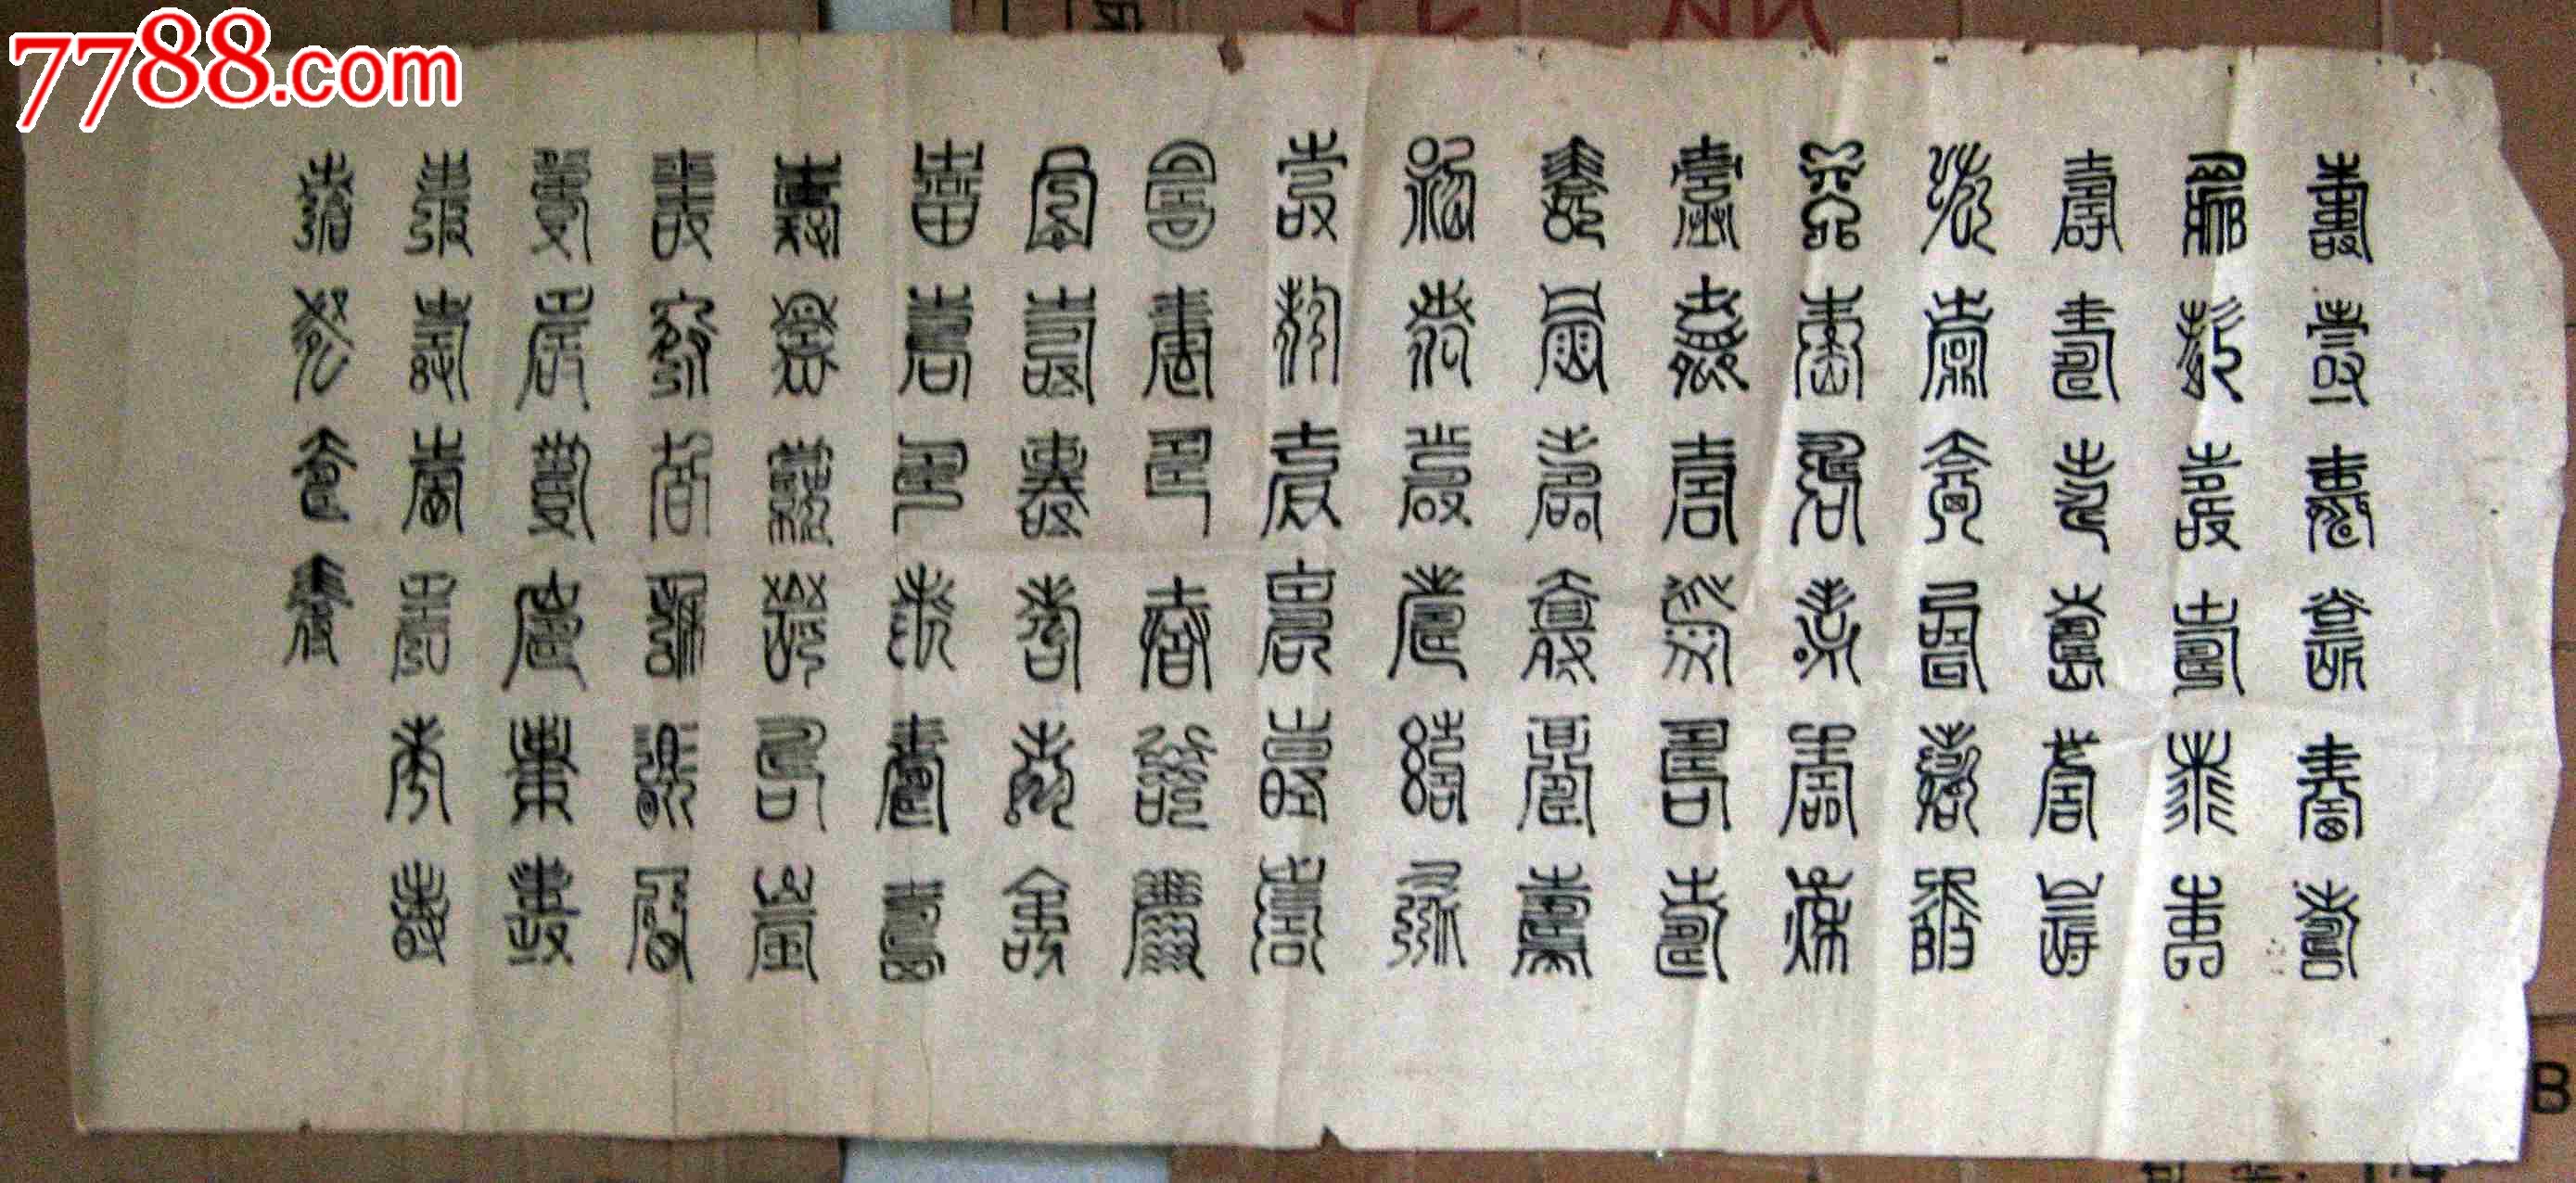 7788.com
壽壽壽壽壽壽
壽壽壽壽壽壽
壽壽壽壽壽壽
壽壽壽壽壽壽
壽壽壽壽壽壽
壽壽壽壽壽壽
壽壽壽壽壽壽
壽壽壽壽壽壽
壽壽壽壽壽壽
壽壽壽壽壽壽
壽壽壽壽壽壽
壽壽壽壽壽壽
壽壽壽壽壽壽
壽壽壽壽壽壽
壽壽壽壽壽壽
壽壽壽壽壽壽
壽壽壽壽
B